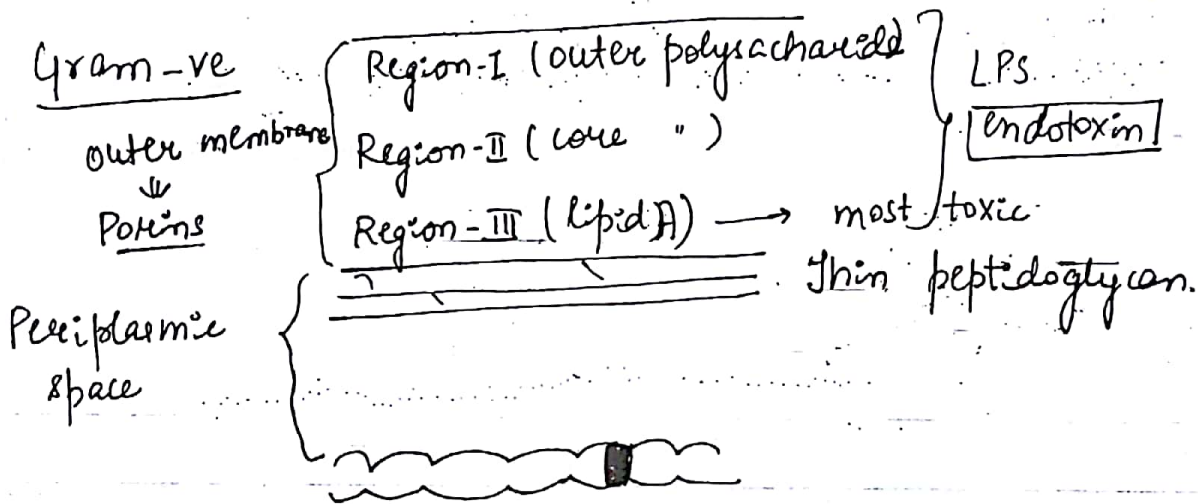 Gram -ve
outer membrane
⇓
Porins
Region-I (outer polysacharide)
Region-II (core " )
Region-III (lipid A) → most toxic
LPS
endotoxin
Thin peptidoglycan.
Periplasmic
space